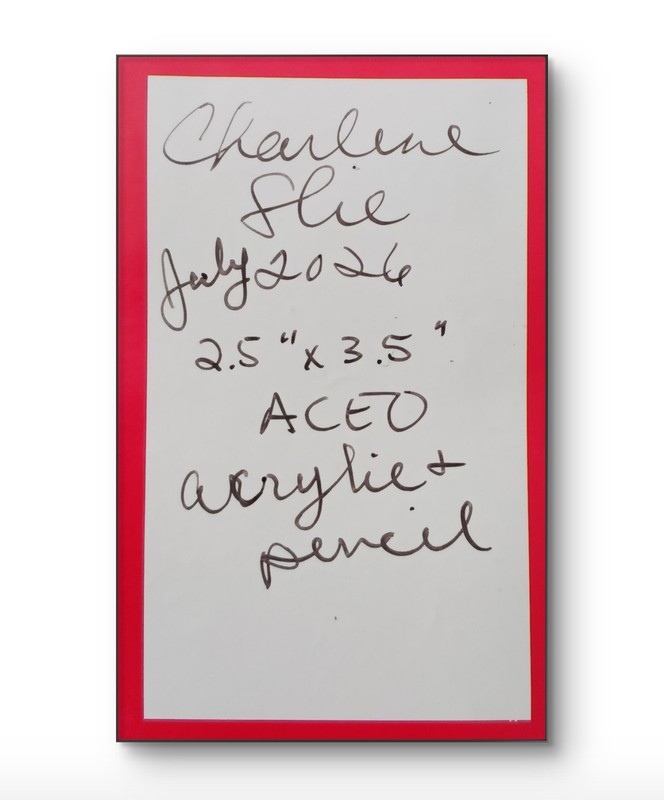 Charlene
Slie
July 2026
2.5" x 3.5"
ACEO
acrylic +
pencil